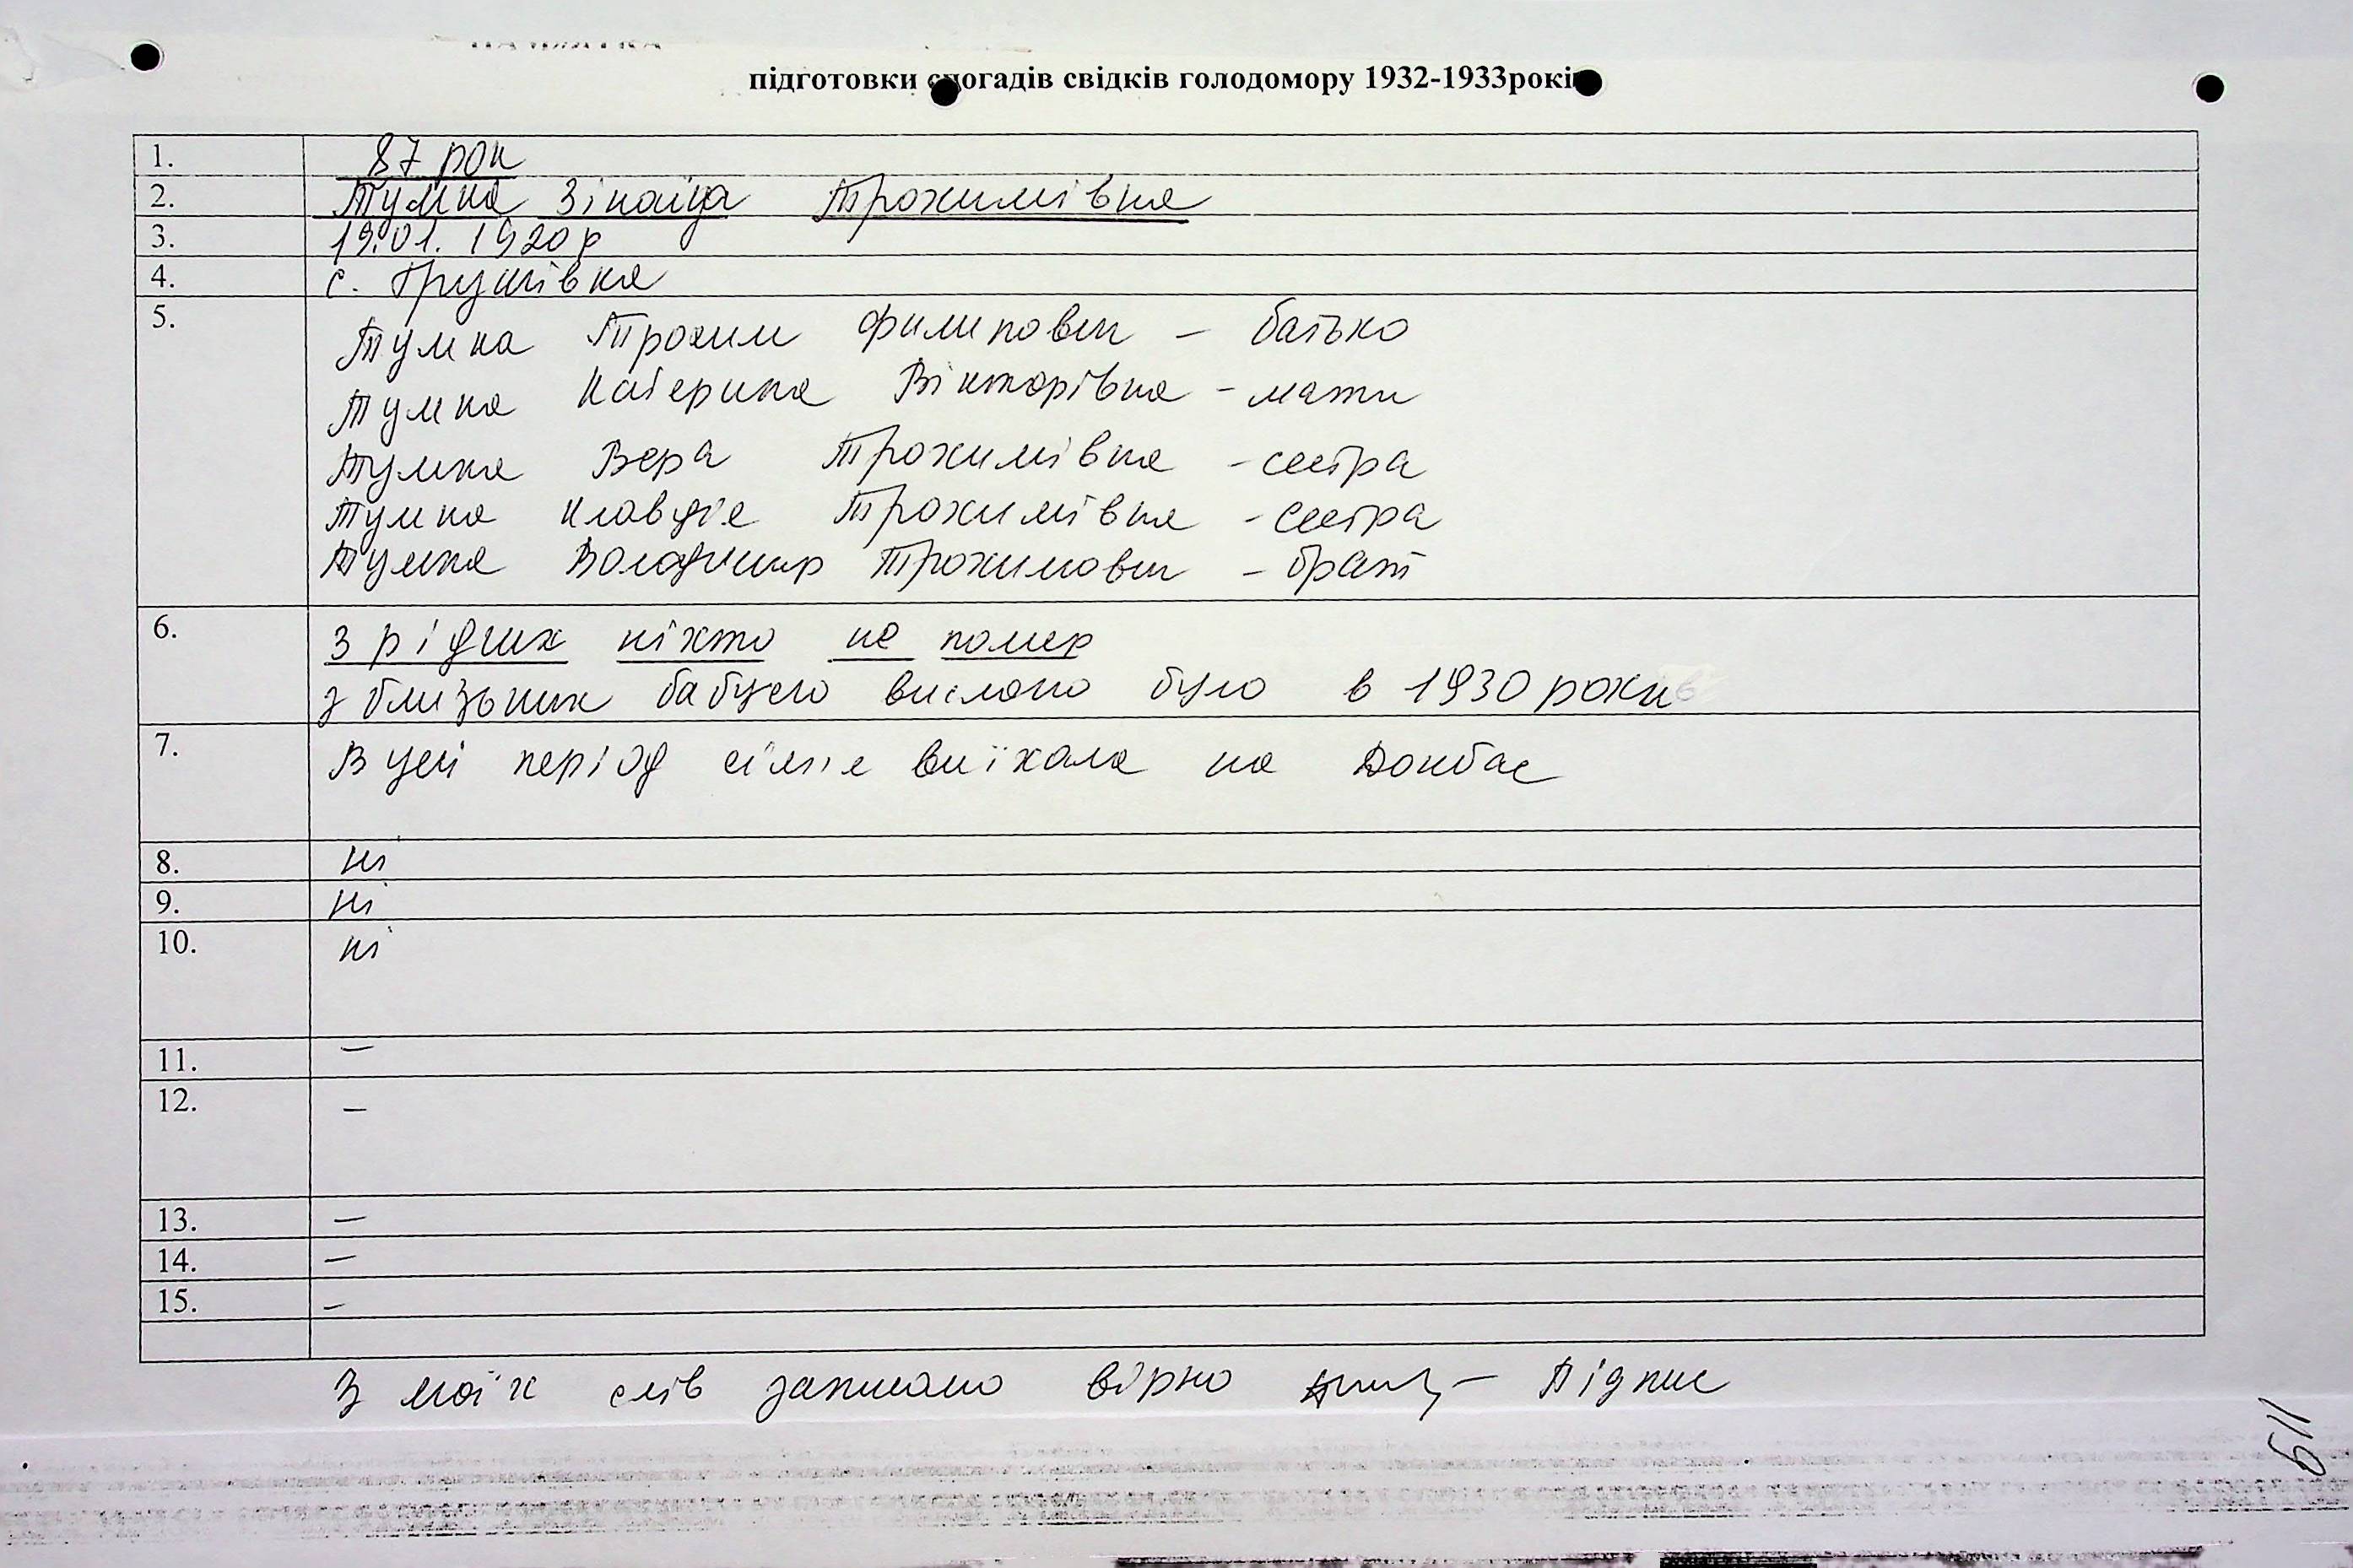 підготовки спогадів свідків голодомору 1932-1933років
1. 87 рок
2. Тумка Зінаїда Трохимівна
3. 19.01.1920р
4. с. Грушівка
5. Тумка Трохим Филипович – батько
Тумка Катерина Вікторівна – мати
Тумка Вера Трохимівна – сестра
Тумка Клавдія Трохимівна – сестра
Тумка Володимир Трохимович – брат
6. З рідних ніхто не помер
з близьких бабусю вислано було в 1930 роки
7. В цей період сім'я виїхала на Донбас
8. ні
9. ні
10. ні
11. –
12. –
13. –
14. –
15. –
З моїх слів записано вірно – Підпис
119